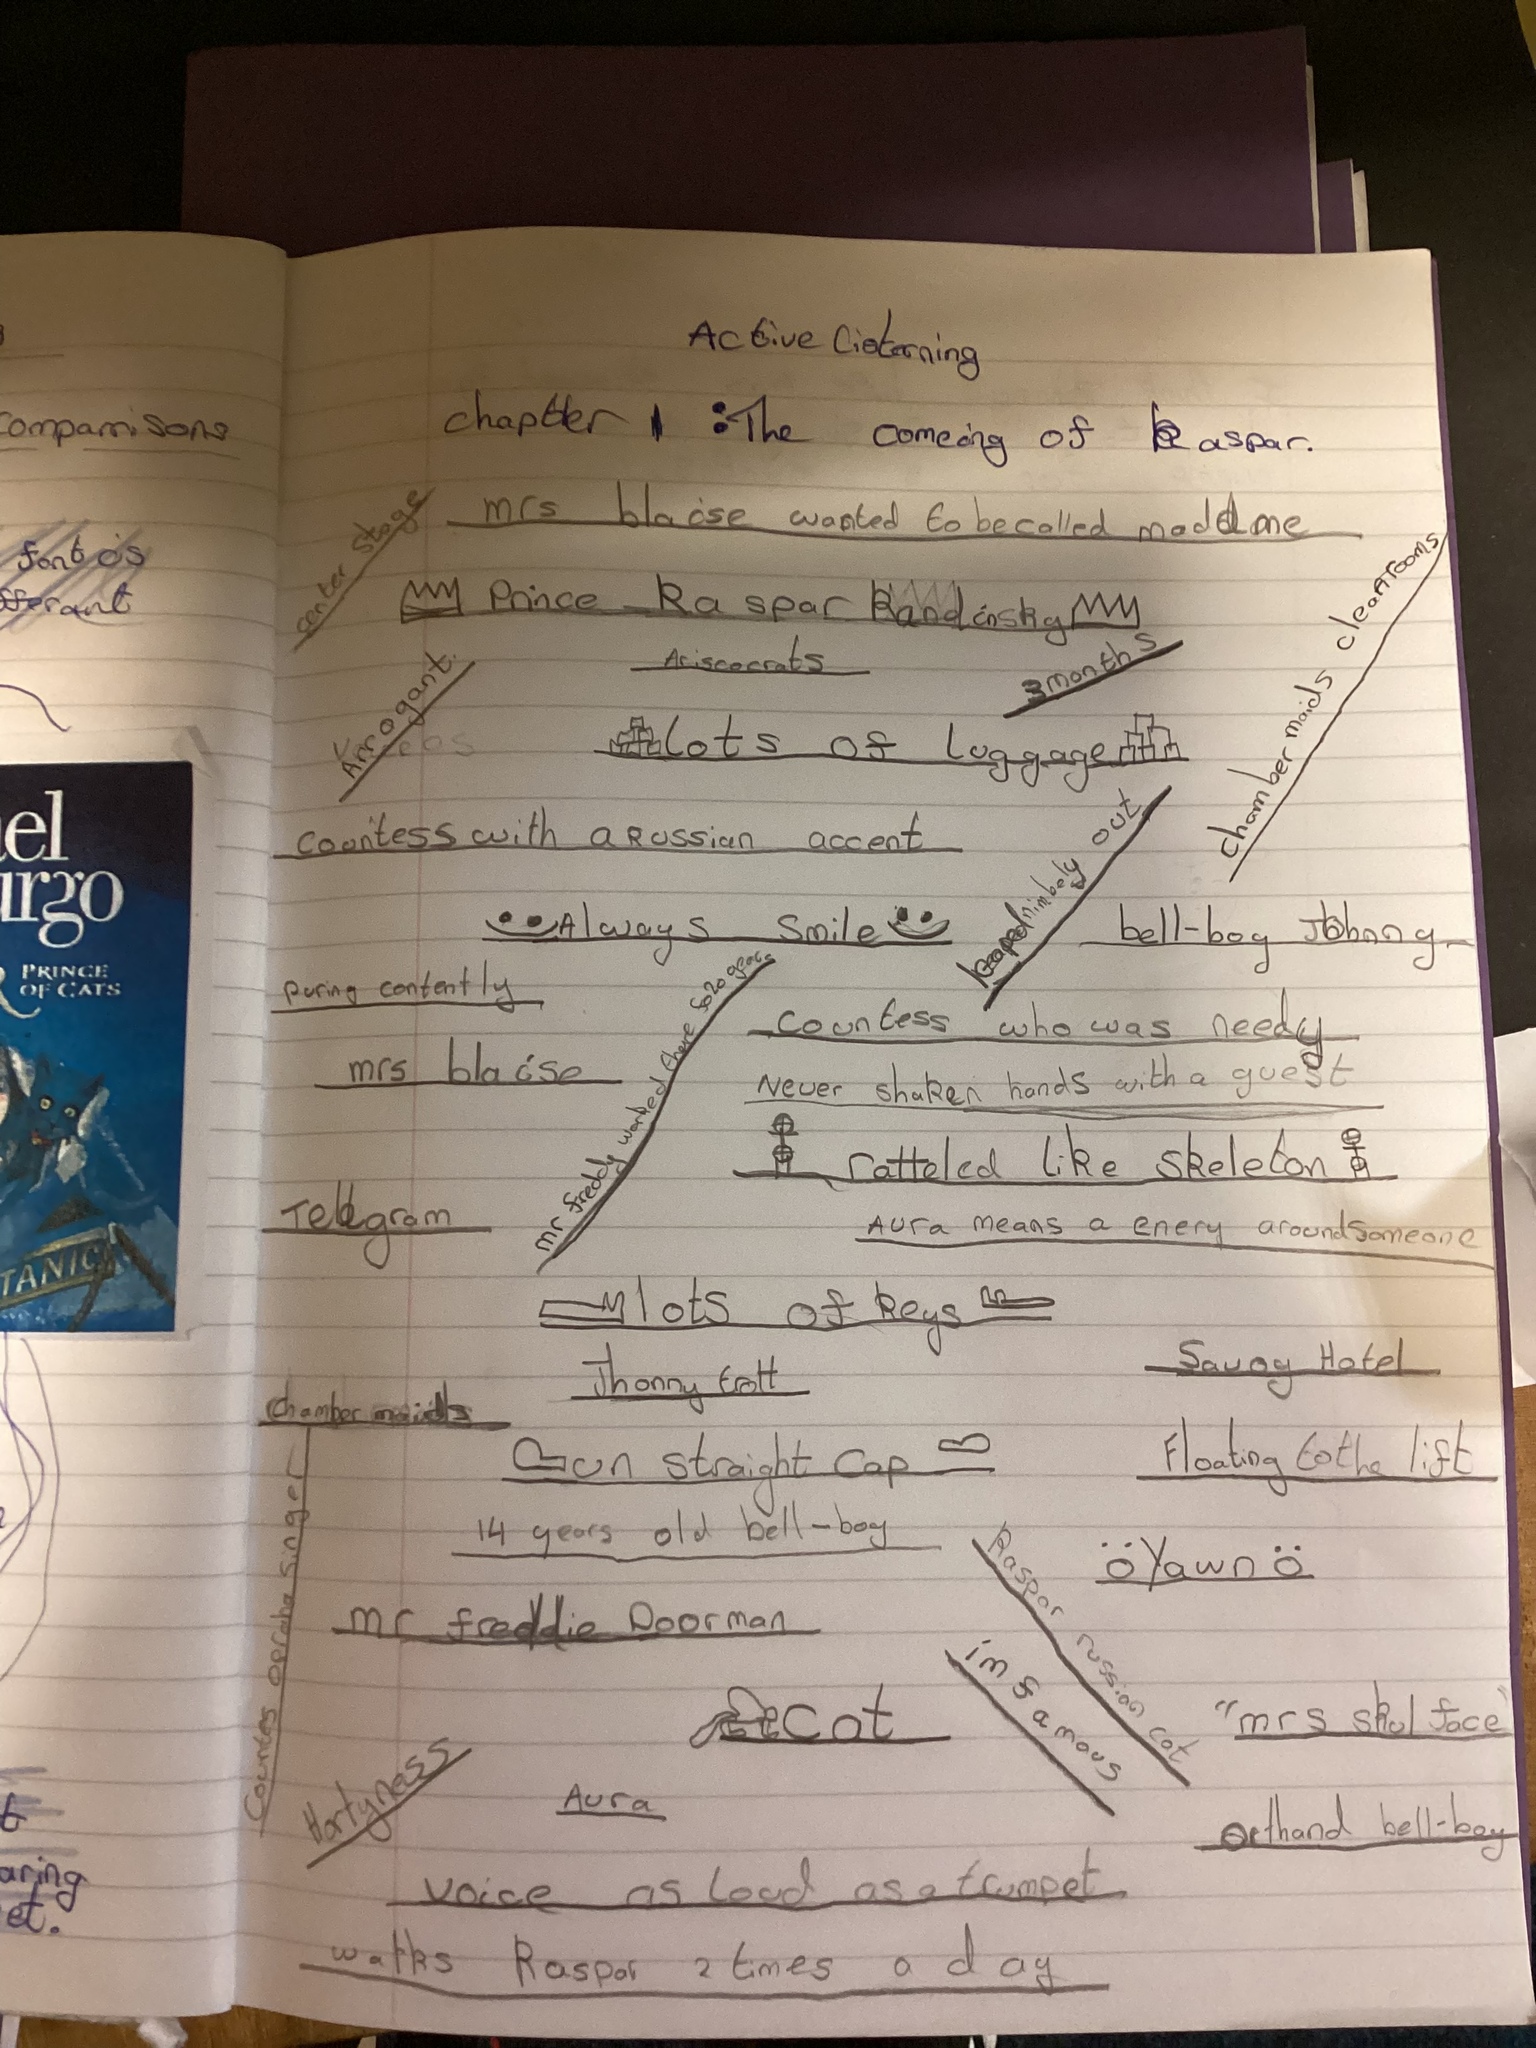 comparrisons
font is
fferant
ael
urgo
PRINCE
OF CATS
TANIC
aring
et.
Active Listerning
chapter 1 : The comeing of Kaspar.
center stage
mrs blaise wanted to be called maddame
Prince Kaspar Kandinsky
Ariscocrats
3 months
Arrogant.
lots of luggage
chamber maids clean rooms
countess with a Russian accent
Always Smile
leaped nimbely out
bell-boy Johnny
puring contently
mr freddy worked there for 20 years
countess who was needy
mrs blaise
Never shaken hands with a guest
ratteled like skeleton
Telegram
Aura means a enery around someone
lots of keys
Jhonny trott
Savoy Hotel
chamber maids
un straight cap
Floating to the lift
14 years old bell-boy
Yawn
Countes opraha singer
mr freddie Doorman
Kaspar russian cat
infamous
cat
"mrs skul face"
Hortyness
Aura
orfhand bell-boy
voice as loud as a trumpet
walks Kaspar 2 times a day